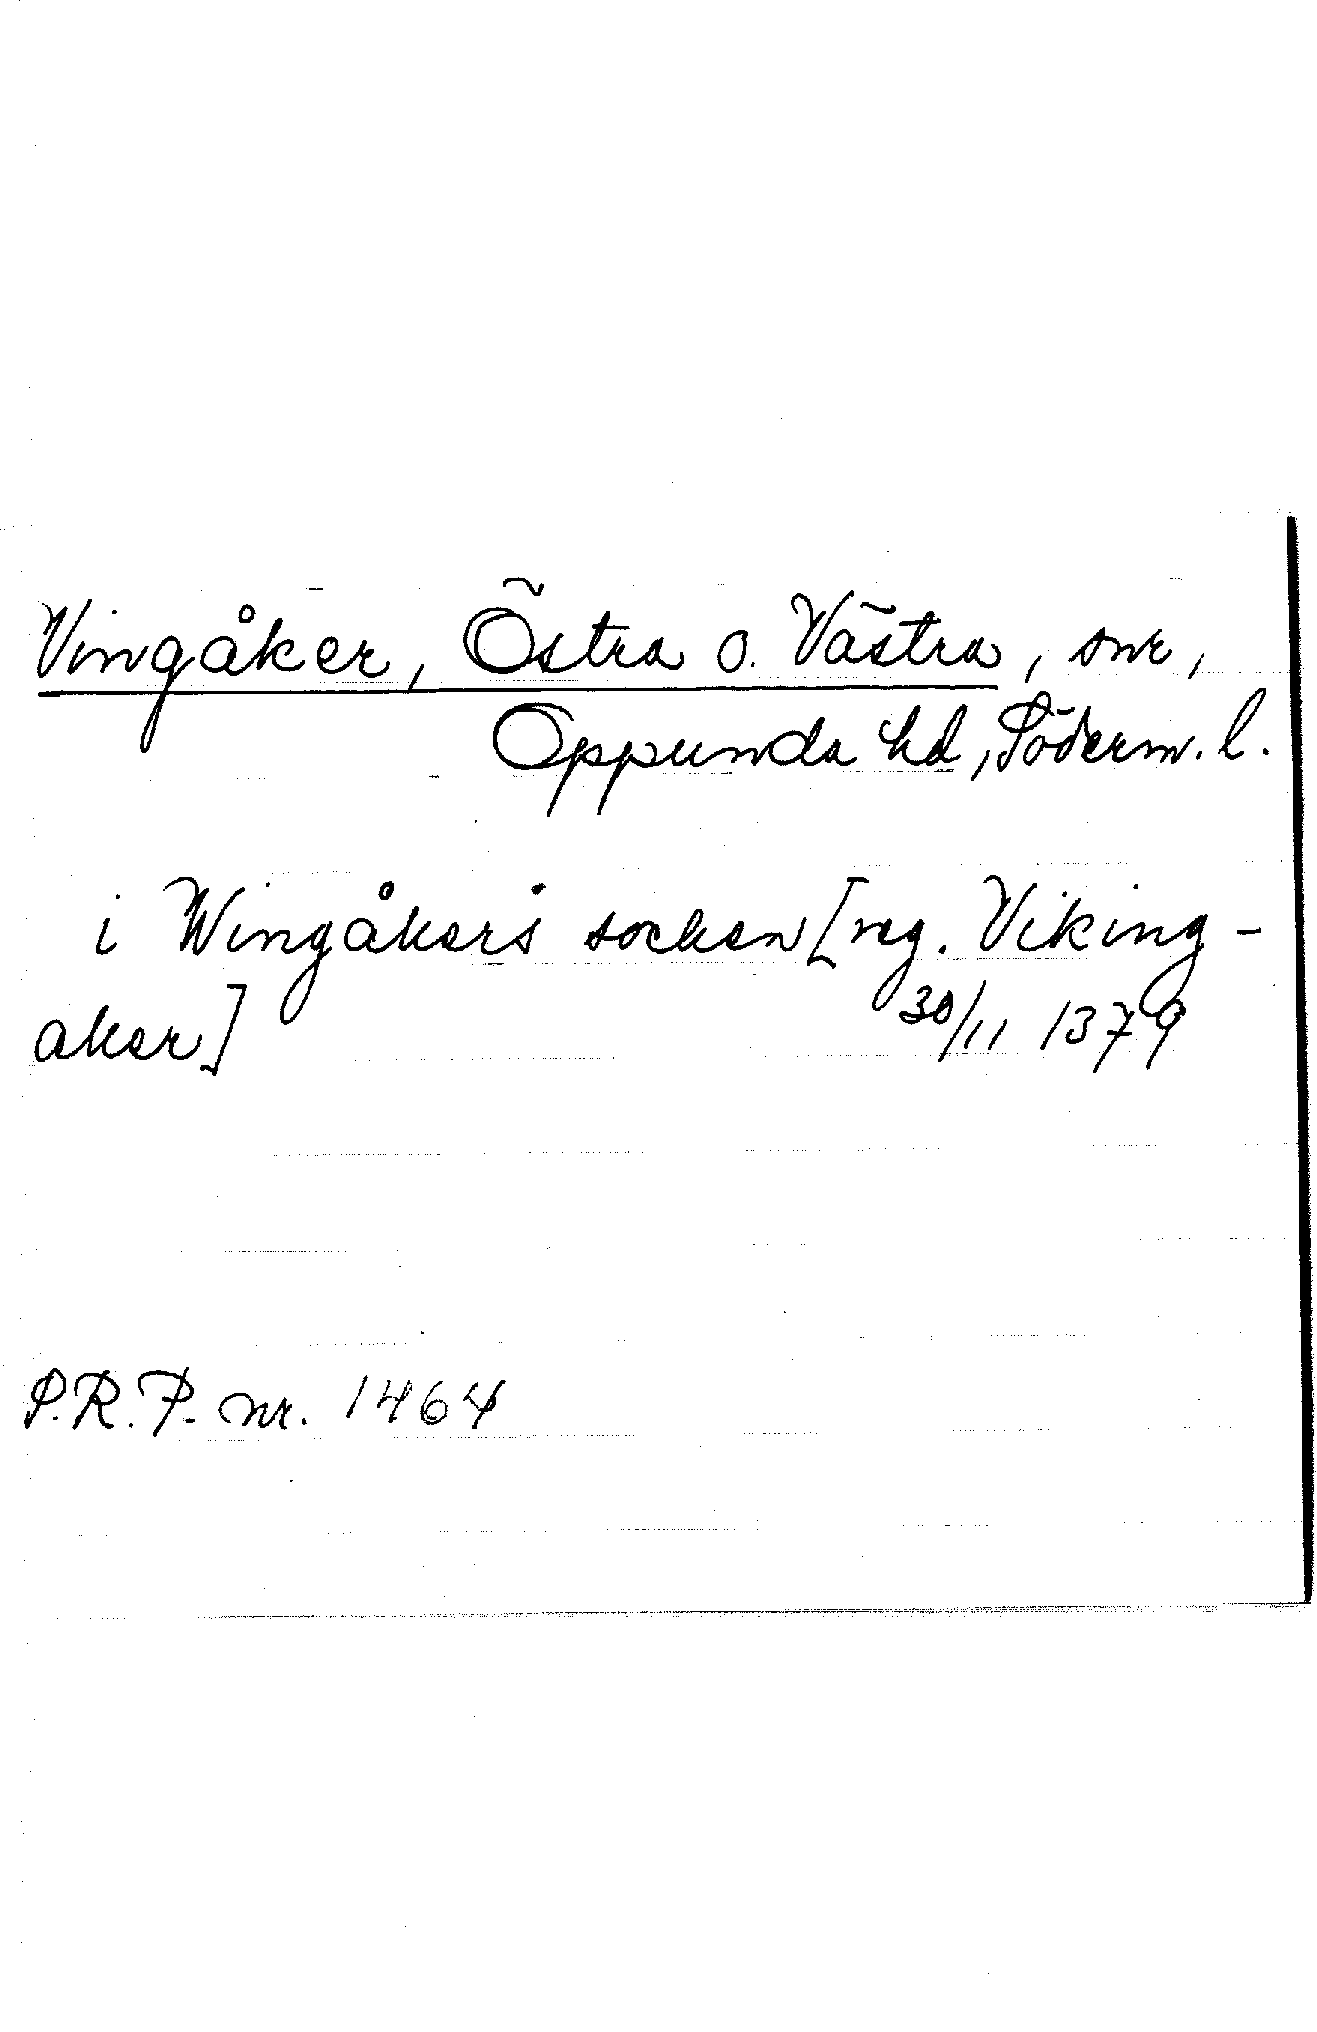 Vingåker, Östra o. Västra, snr,
Oppunda hd, Söderm. l.
i Wingåkers socken [reg. Viking-
aker] 30/11 1379
S.R.P. nr. 1464